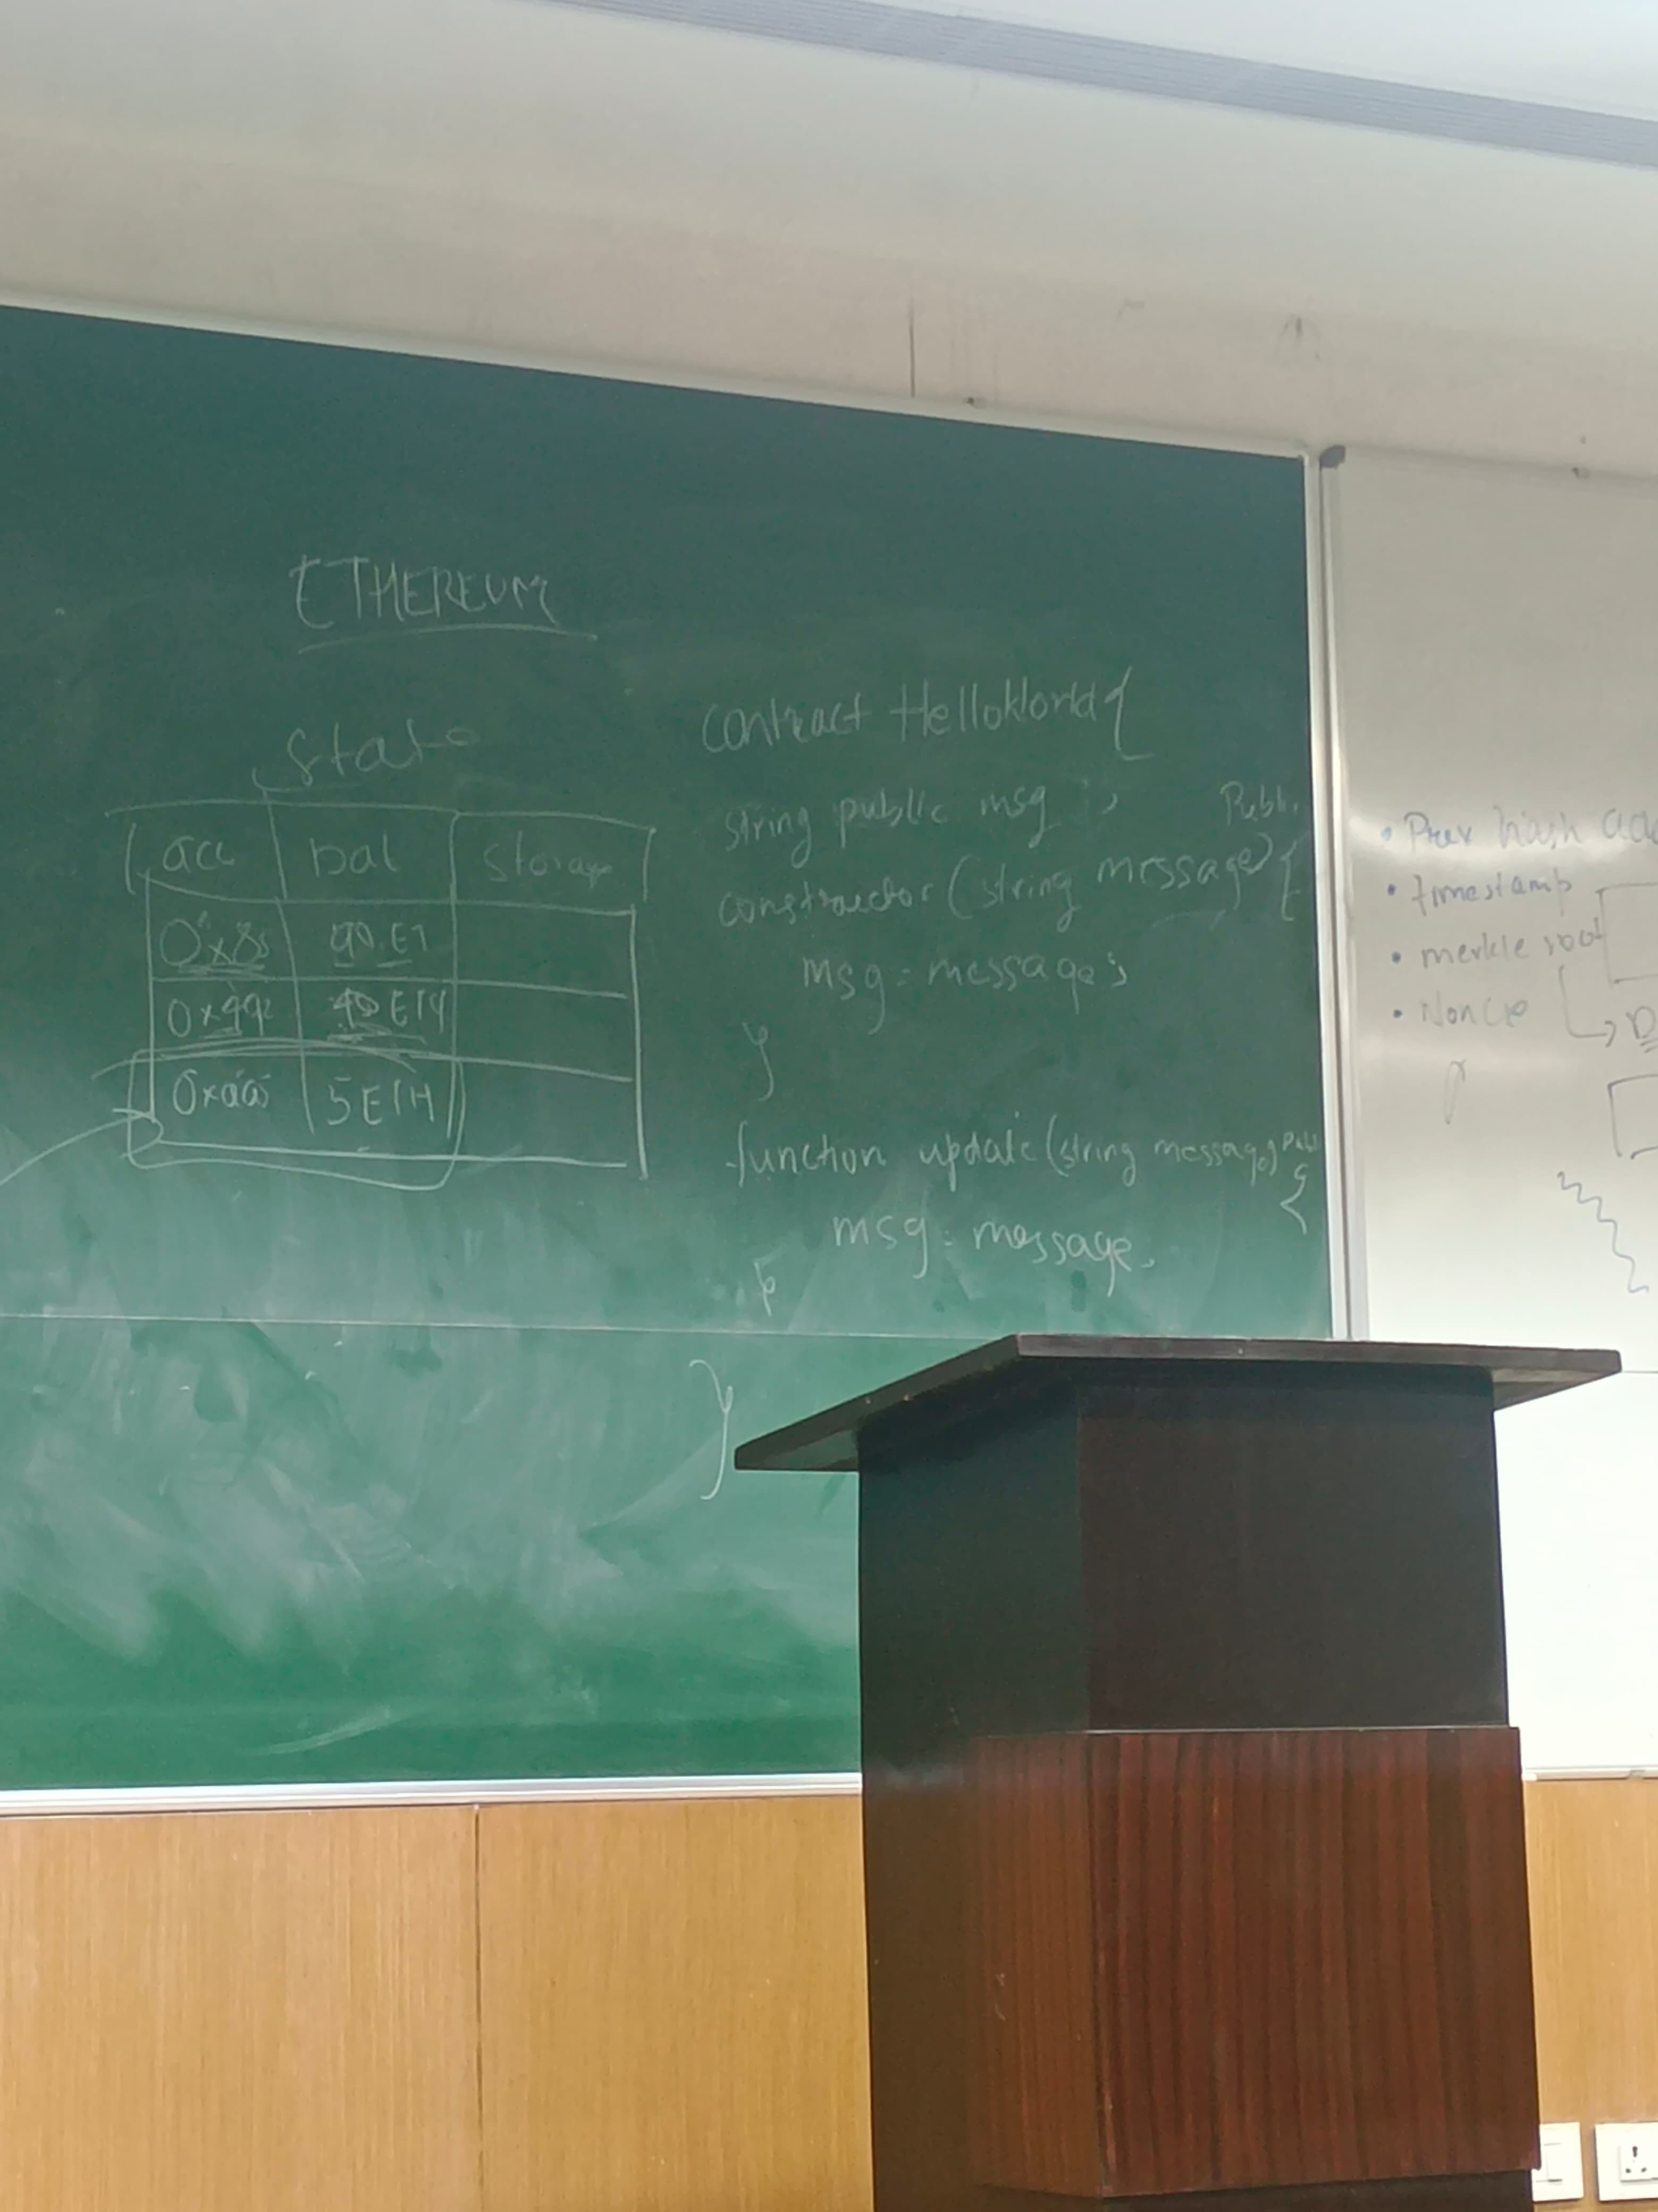 ETHEREUM
State
acc bal storage
0x8s 90 ET
40 ETH
5 ETH
contract HelloWorld {
string public msg ;
constructor (string message) {
msg = message ;
}
function update (string message) {
msg = message
}
}
• Prev hash
• timestamp
• merkle root
• Nonce